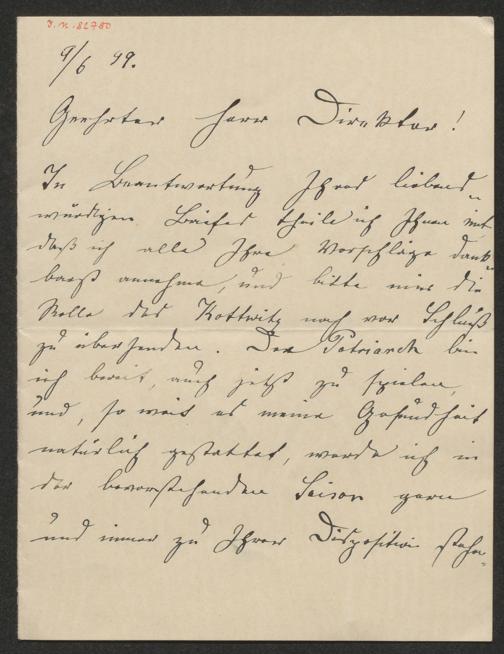 J.N. 82780
9/6 99.
Geehrter Herr Direktor!
In Beantwortung Ihres liebens-
würdigen Briefes theile ich Ihnen mit
daß ich alle Ihre Vorschläge dank-
barst annehme, und bitte mir die
Rolle des Kottwitz noch vor Schluß
zu übersenden. Den Patriarch bin
ich bereit, auch jetzt zu spielen,
und, so weit es meine Gesundheit
natürlich gestattet, werde ich in
der bevorstehenden Saison gern
und immer zu Ihrer Disposition stehn.